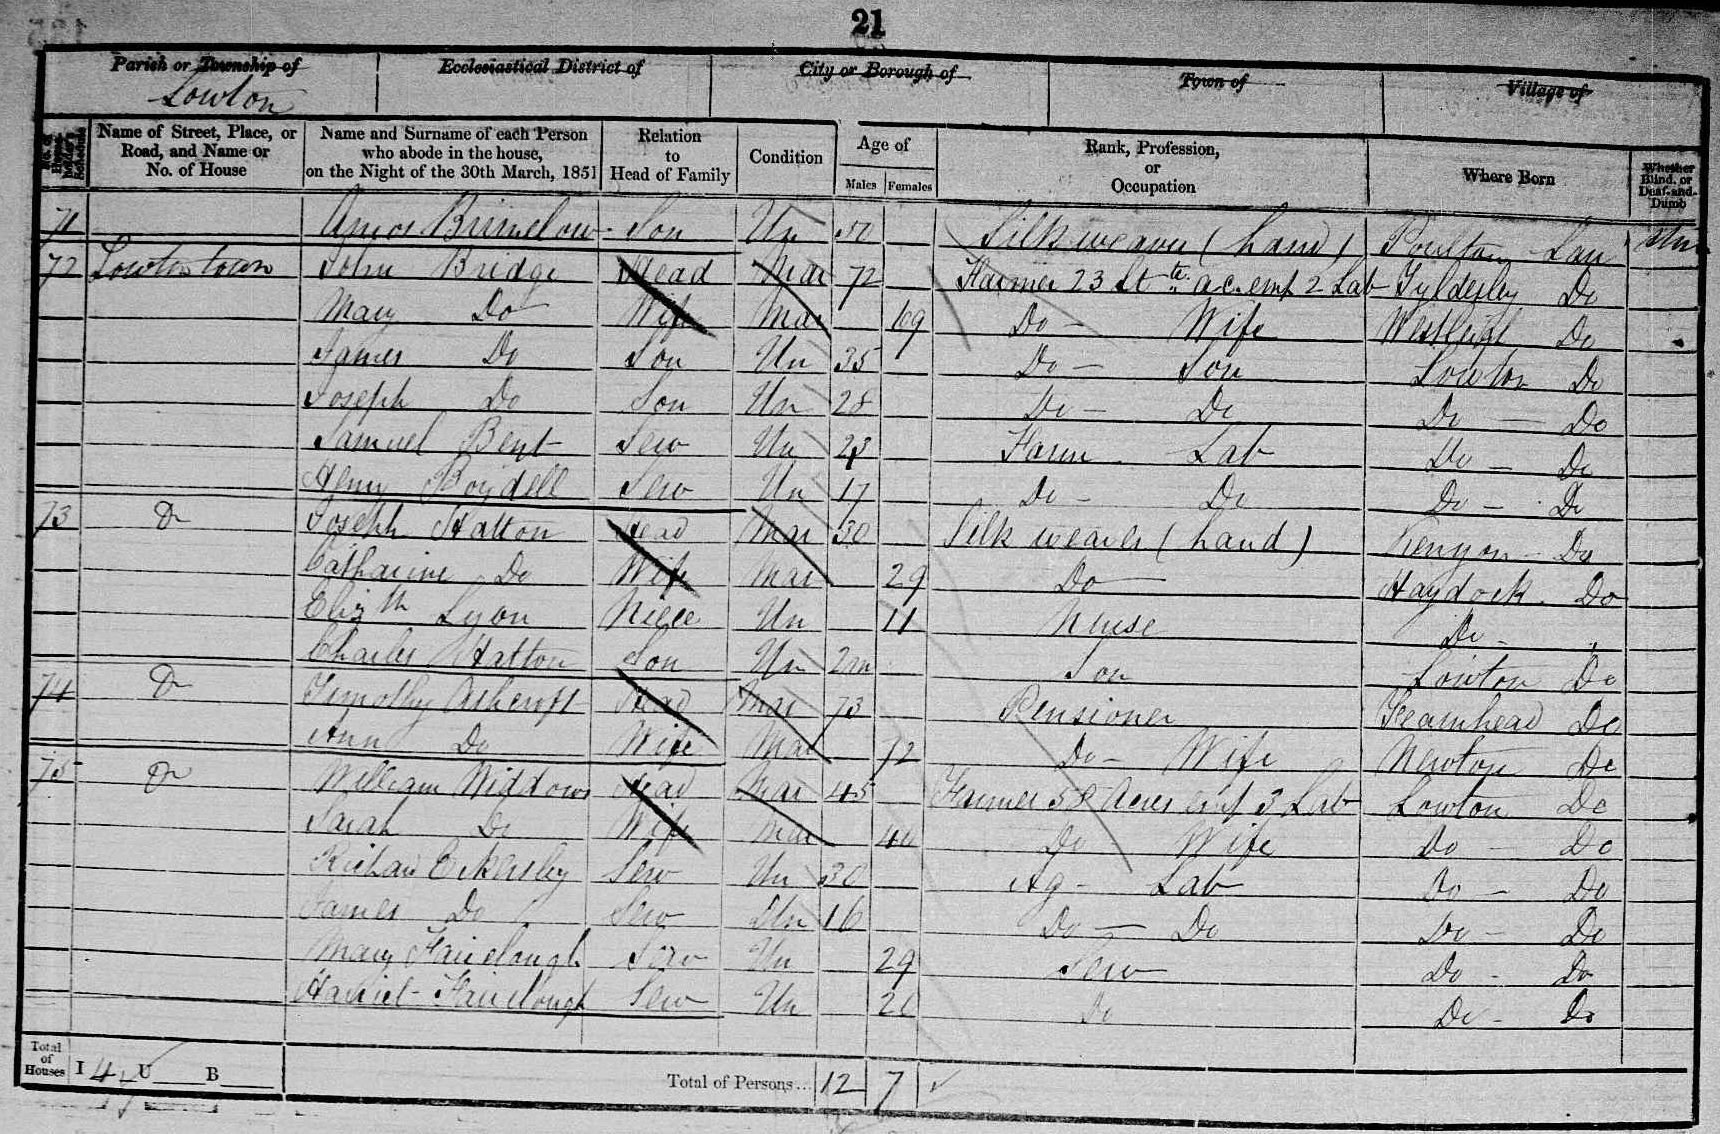 21
Parish or Township of Ecclesiastical District of City or Borough of Town of Village of
Lowton
Name of Street, Place, or Road, and Name or No. of House
Name and Surname of each Person who abode in the house, on the Night of the 30th March, 1851
Relation to Head of Family
Condition
Age of
Males Females
Rank, Profession, or Occupation
Where Born
Whether Blind, or Deaf-and-Dumb
71 Amos Brimelow Son Un Silk weaver (hand) Poulton Lan
72 Lowton town John Bridge Head Mar 72 Farmer 23 ac emp 2 Lab Tyldesley Do
Mary Do Wife Mar 69 Do - Wife Westleigh Do
James Do Son Un 35 Do - Son Lowton Do
Joseph Do Son Un 28 Do - Do Do - Do
Samuel Bent Serv Un 23 Farm Lab Do - Do
Henry Boydell Serv Un 17 Do - Do Do - Do
73 Do Joseph Hatton Head Mar 30 Silk weaver (hand) Kenyon Do
Catharine Do Wife Mar 29 Do Haydock Do
Elizth Lyon Niece Un 11 Nurse Do -
Charles Hatton Son Un 2m Son Lowton Do
74 Do Timothy Ashcroft Head Mar 73 Pensioner Fearnhead Do
Ann Do Wife Mar 72 Do - Wife Newton Do
75 Do William Widdows Head Mar 45 Farmer 58 Acres emp 3 Lab Lowton Do
Sarah Do Wife Mar Do Wife Do - Do
Richard Eckersley Serv Un 30 Ag - Lab Do - Do
James Do Serv Un 16 Do - Do Do - Do
Mary Fairclough Serv Un 29 Serv Do - Do
Harriet Fairclough Serv Un Do Do - Do
Total of Houses I 4 U B Total of Persons... 12 7